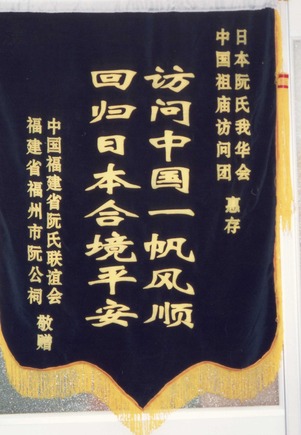 日本阮氏我华会
中国祖庙访问团 惠存
访问中国一帆风顺
回归日本合境平安
中国福建省阮氏联谊会
福建省福州市阮公祠 敬赠